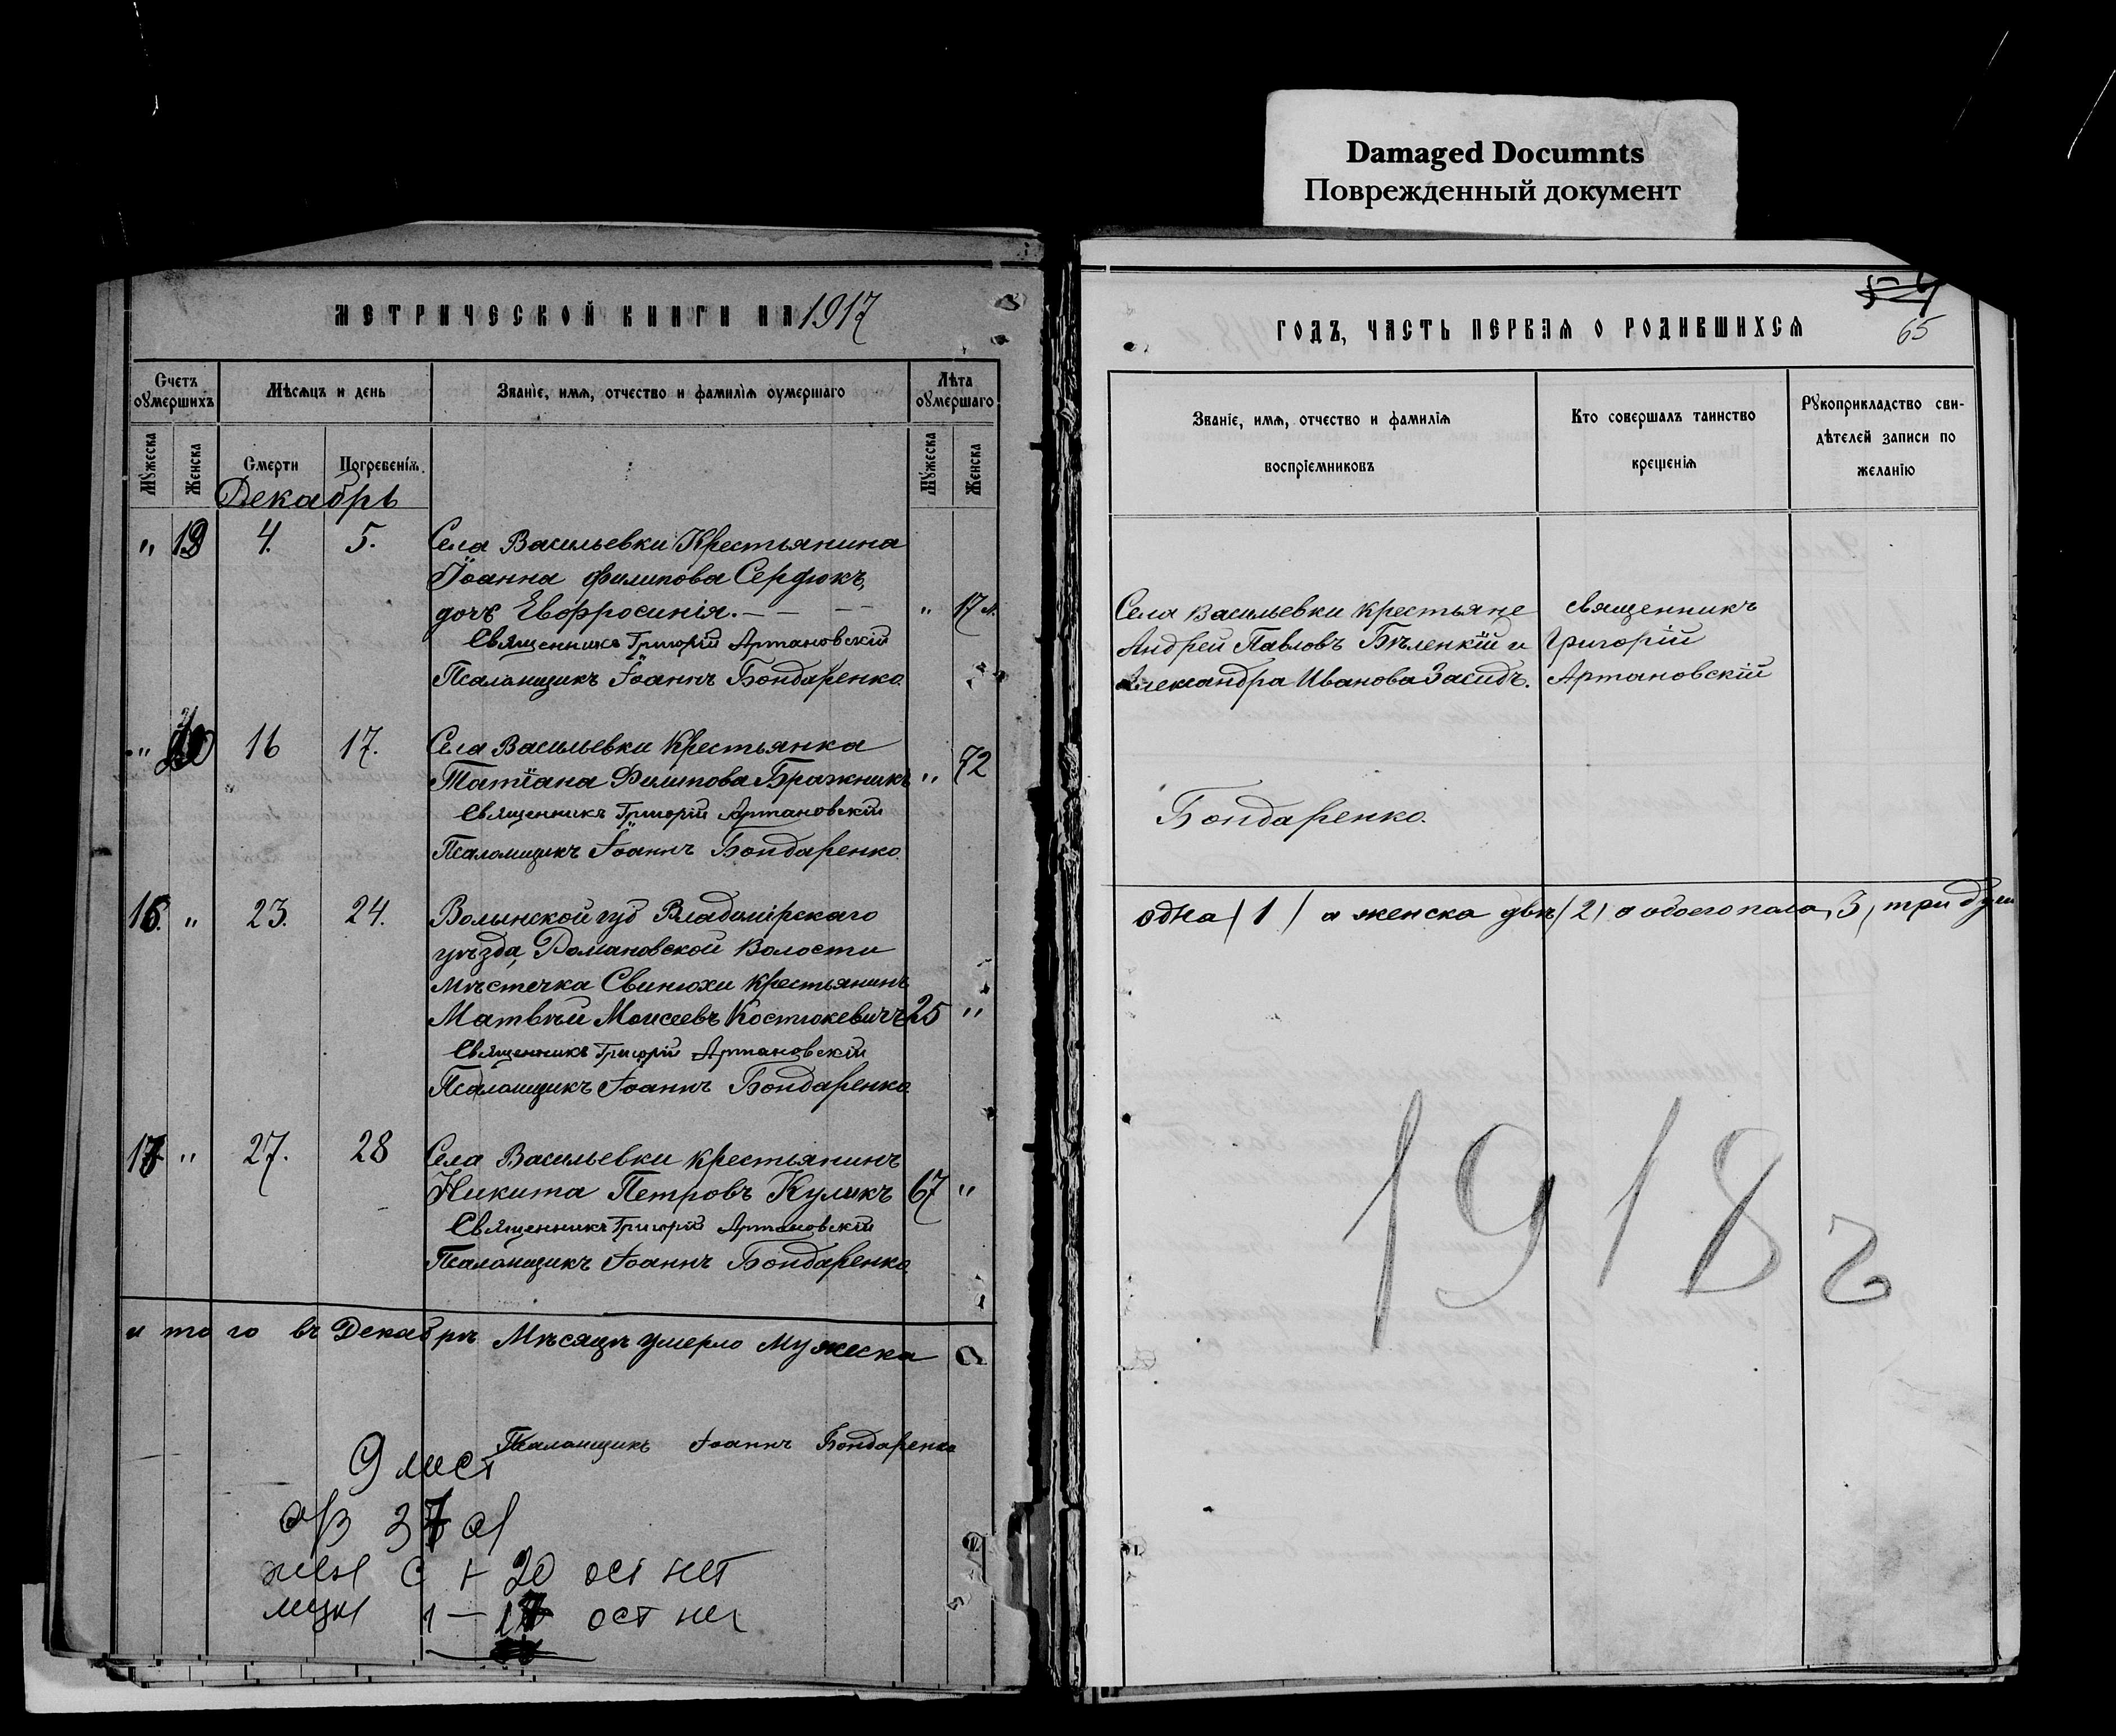 Damaged Documnts
Поврежденный документ
МЕТРИЧЕСКОЙ КНИГИ НА 1917
Счетъ оумершихъ
Мѣсяцъ и день
Званіе, имя, отчество и фамилія оумершаго
Лѣта оумершаго
Мужеска
Женска
Смерти
Погребенія
Мужеска
Женска
Декабрь
" 19 4. 5. Села Васильевки Крестьянина
Іоанна Филипова Сердюкъ,
дочь Евфросинія. — " 17 л.
Священникъ Григорій Артановскій
Псаломщикъ Іоаннъ Бондаренко.
" 20 16 17. Села Васильевки Крестьянка
Татіана Филипова Бражникъ " 72
Священникъ Григорій Артановскій
Псаломщикъ Іоаннъ Бондаренко.
16. " 23. 24. Волынской губ Владимірскаго
уѣзда, Романовской Волости
мѣстечка Свинюхи крестьянинъ
Матвѣй Моисеевъ Костюкевичъ 25 "
Священникъ Григорій Артановскій
Псаломщикъ Іоаннъ Бондаренко
17 " 27. 28 Села Васильевки крестьянинъ
Никита Петровъ Куликъ 67 "
Священникъ Григорій Артановскій
Псаломщикъ Іоаннъ Бондаренко.
итого въ Декабрѣ Мѣсяцѣ умерло Мужеска
Псаломщикъ Іоаннъ Бондаренко
9 лист
37
20 ост нет
1 — 17 ост
ГОДЪ, ЧАСТЬ ПЕРВАЯ О РОДИВШИХСЯ
65
Званіе, имя, отчество и фамилія
воспріемниковъ
Кто совершалъ таинство
крещенія
Рукоприкладство сви-
дѣтелей записи по
желанію
Села Васильевки крестьяне
Андрей Павловъ Бѣленкій и
Александра Иванова Засидъ.
священникъ
Григорій
Артановскій
Бондаренко.
одна (1) а женска двѣ (2) а обоего пола (3) три души
1918 г